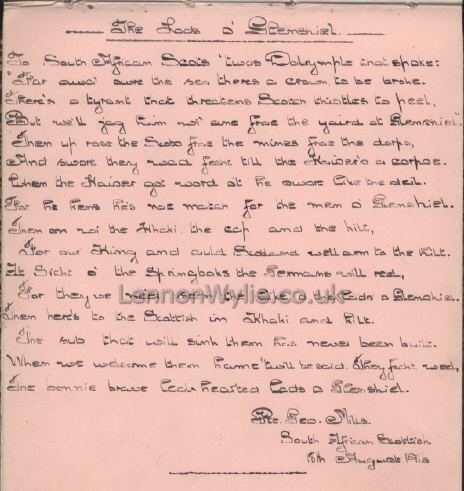 The Lads o' Glenshiel.
To South African Scots 'twas Dalrymple that spoke:
"Far awa' owre the sea theres a crown to be broke.
There's a tyrant that threatens Scotch thistles to peel,
But we'll jag him wi' ane frae the yaird at Glenshiel".
Then up rose the Scots frae the mines frae the dorps,
And swore they wad fecht till the Kaiser's a corpse.
When the Kaiser got word at he swore like the deil.
For he kens he's nae match for the men o' Glenshiel.
Then on wi the Khaki. the cap and the kilt,
For our King and auld Scotland we'll arm to the hilt.
At Sicht o' the Springboks the Germans will reel,
For they've never seen the like o the Lads o Glenshiel.
Then here's to the Scottish in Khaki and kilt.
The sub that will sink them has never been built.
When we welcome them hame 'twill be said. They focht weel,
The bonnie brave leal hearted Lads o Glenshiel.
Pte. Geo. Mills.
South African Scottish
August
LennonWylie.co.uk